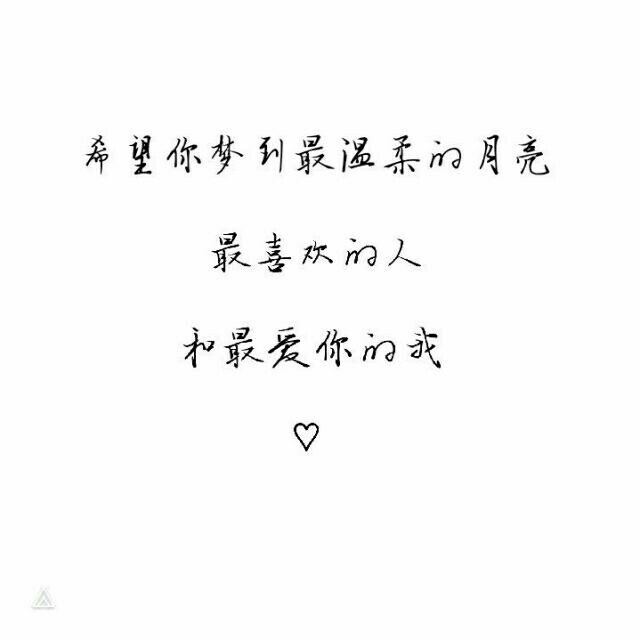 希望你梦到最温柔的月亮
最喜欢的人
和最爱你的我
♡